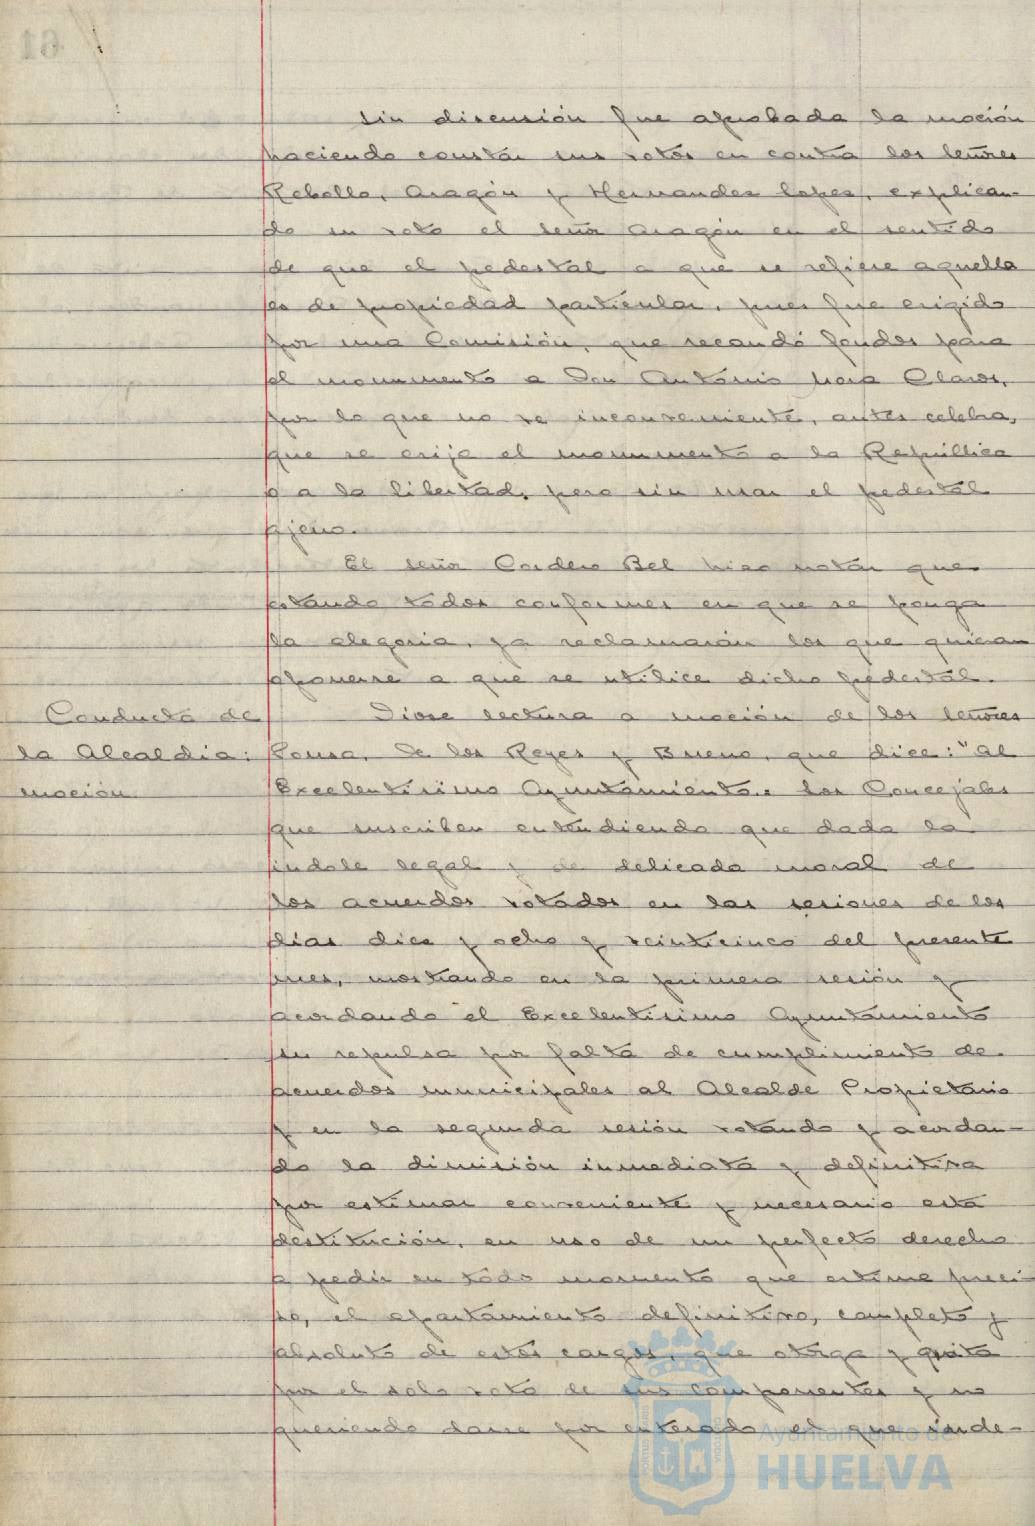 Sin discusión fue aprobada la moción
haciendo constar sus votos en contra los señores
Rebollo, Aragón y Hernandez Lopez, explican-
do su voto el señor Aragón en el sentido
de que el pedestal a que se refiere aquella
es de propiedad particular, pues fue erigido
por una Comisión, que recaudó fondos para
el monumento a Don Antonio Mora Claros,
por lo que no ve inconveniente, antes celebra,
que se erija el monumento a la República
o a la libertad, pero sin usar el pedestal
ajeno.
El señor Cordero Bel hizo notar que
estando todos conformes en que se ponga
la alegoria, ya reclamarán los que quieran
oponerse a que se utilice dicho pedestal.
Conducta de
la Alcaldia:
moción
Diose lectura a moción de los señores
Ponsa, De los Reyes y Bueno, que dice: "Al
Excelentisimo Ayuntamiento.. Los Concejales
que suscriben entendiendo que dada la
indole legal y de delicada moral de
los acuerdos votados en las sesiones de los
dias diez y ocho y veinticinco del presente
mes, mostrando en la primera sesión y
acordando el Excelentisimo Ayuntamiento
su repulsa por falta de cumplimiento de
acuerdos municipales al Alcalde Propietario
y en la segunda sesión votando y acordan-
do la dimisión inmediata y definitiva
por estimar conveniente y necesario esta
destitución, en uso de un perfecto derecho
a pedir en todo momento que estime preci-
so, el apartamiento definitivo, completo y
absoluto de estos cargos, que otorga y quita
por el solo voto de sus componentes y no
queriendo darse por enterado el que inde-
Ayuntamiento de
HUELVA